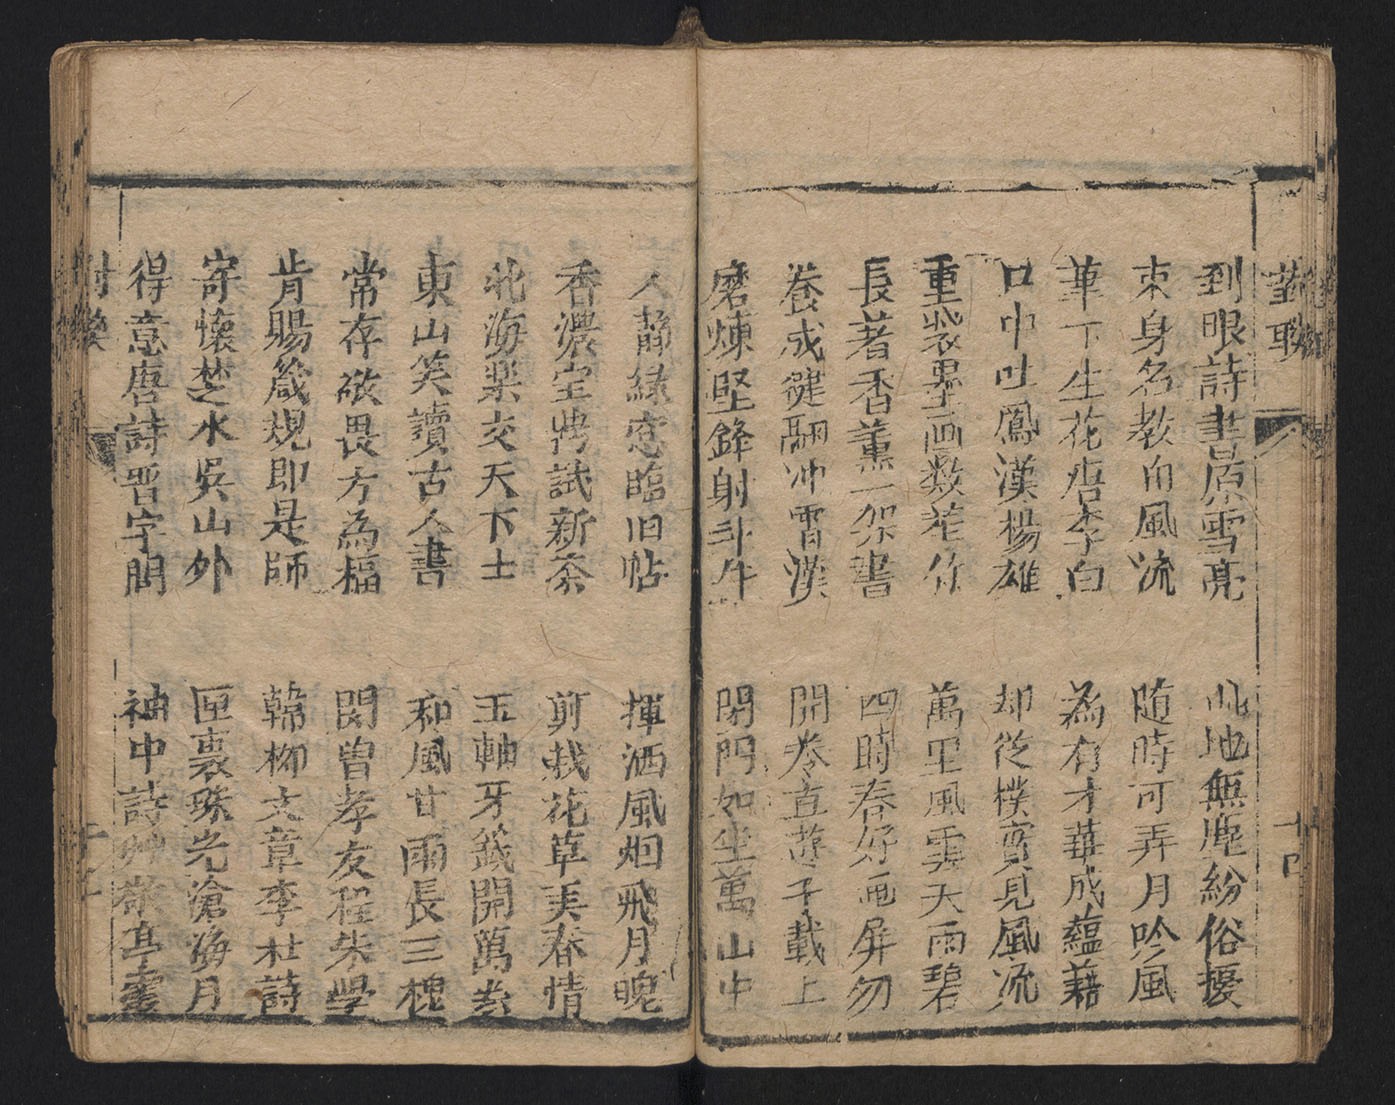 對聯
到眼詩書雪亮
束身名教自風流
筆下生花唐李白
口中吐鳳漢楊雄
重裝墨画数莖竹
長著香薰一架書
養成健翮冲霄漢
磨煉堅鋒射斗牛
此地無塵紛俗擾
随時可弄月吟風
為有才華成蘊藉
却從樸實見風流
萬里風雲天雨碧
四時春好画屏勿
開卷直遊千載上
閉門如坐萬山中
十四
人静緑窓臨旧帖
香濃宝試新茶
北海樂交天下士
東山笑讀古人書
常存敬畏方為福
肯賜箴規即是師
寄懷楚水吳山外
得意唐詩晋字間
揮洒風烟飛月晚
剪裁花草美春情
玉軸牙籤開萬卷
和風甘雨長三槐
閔曽孝友程朱學
韓柳文章李杜詩
匣裏珠光滄海月
袖中詩艸敬亭雲